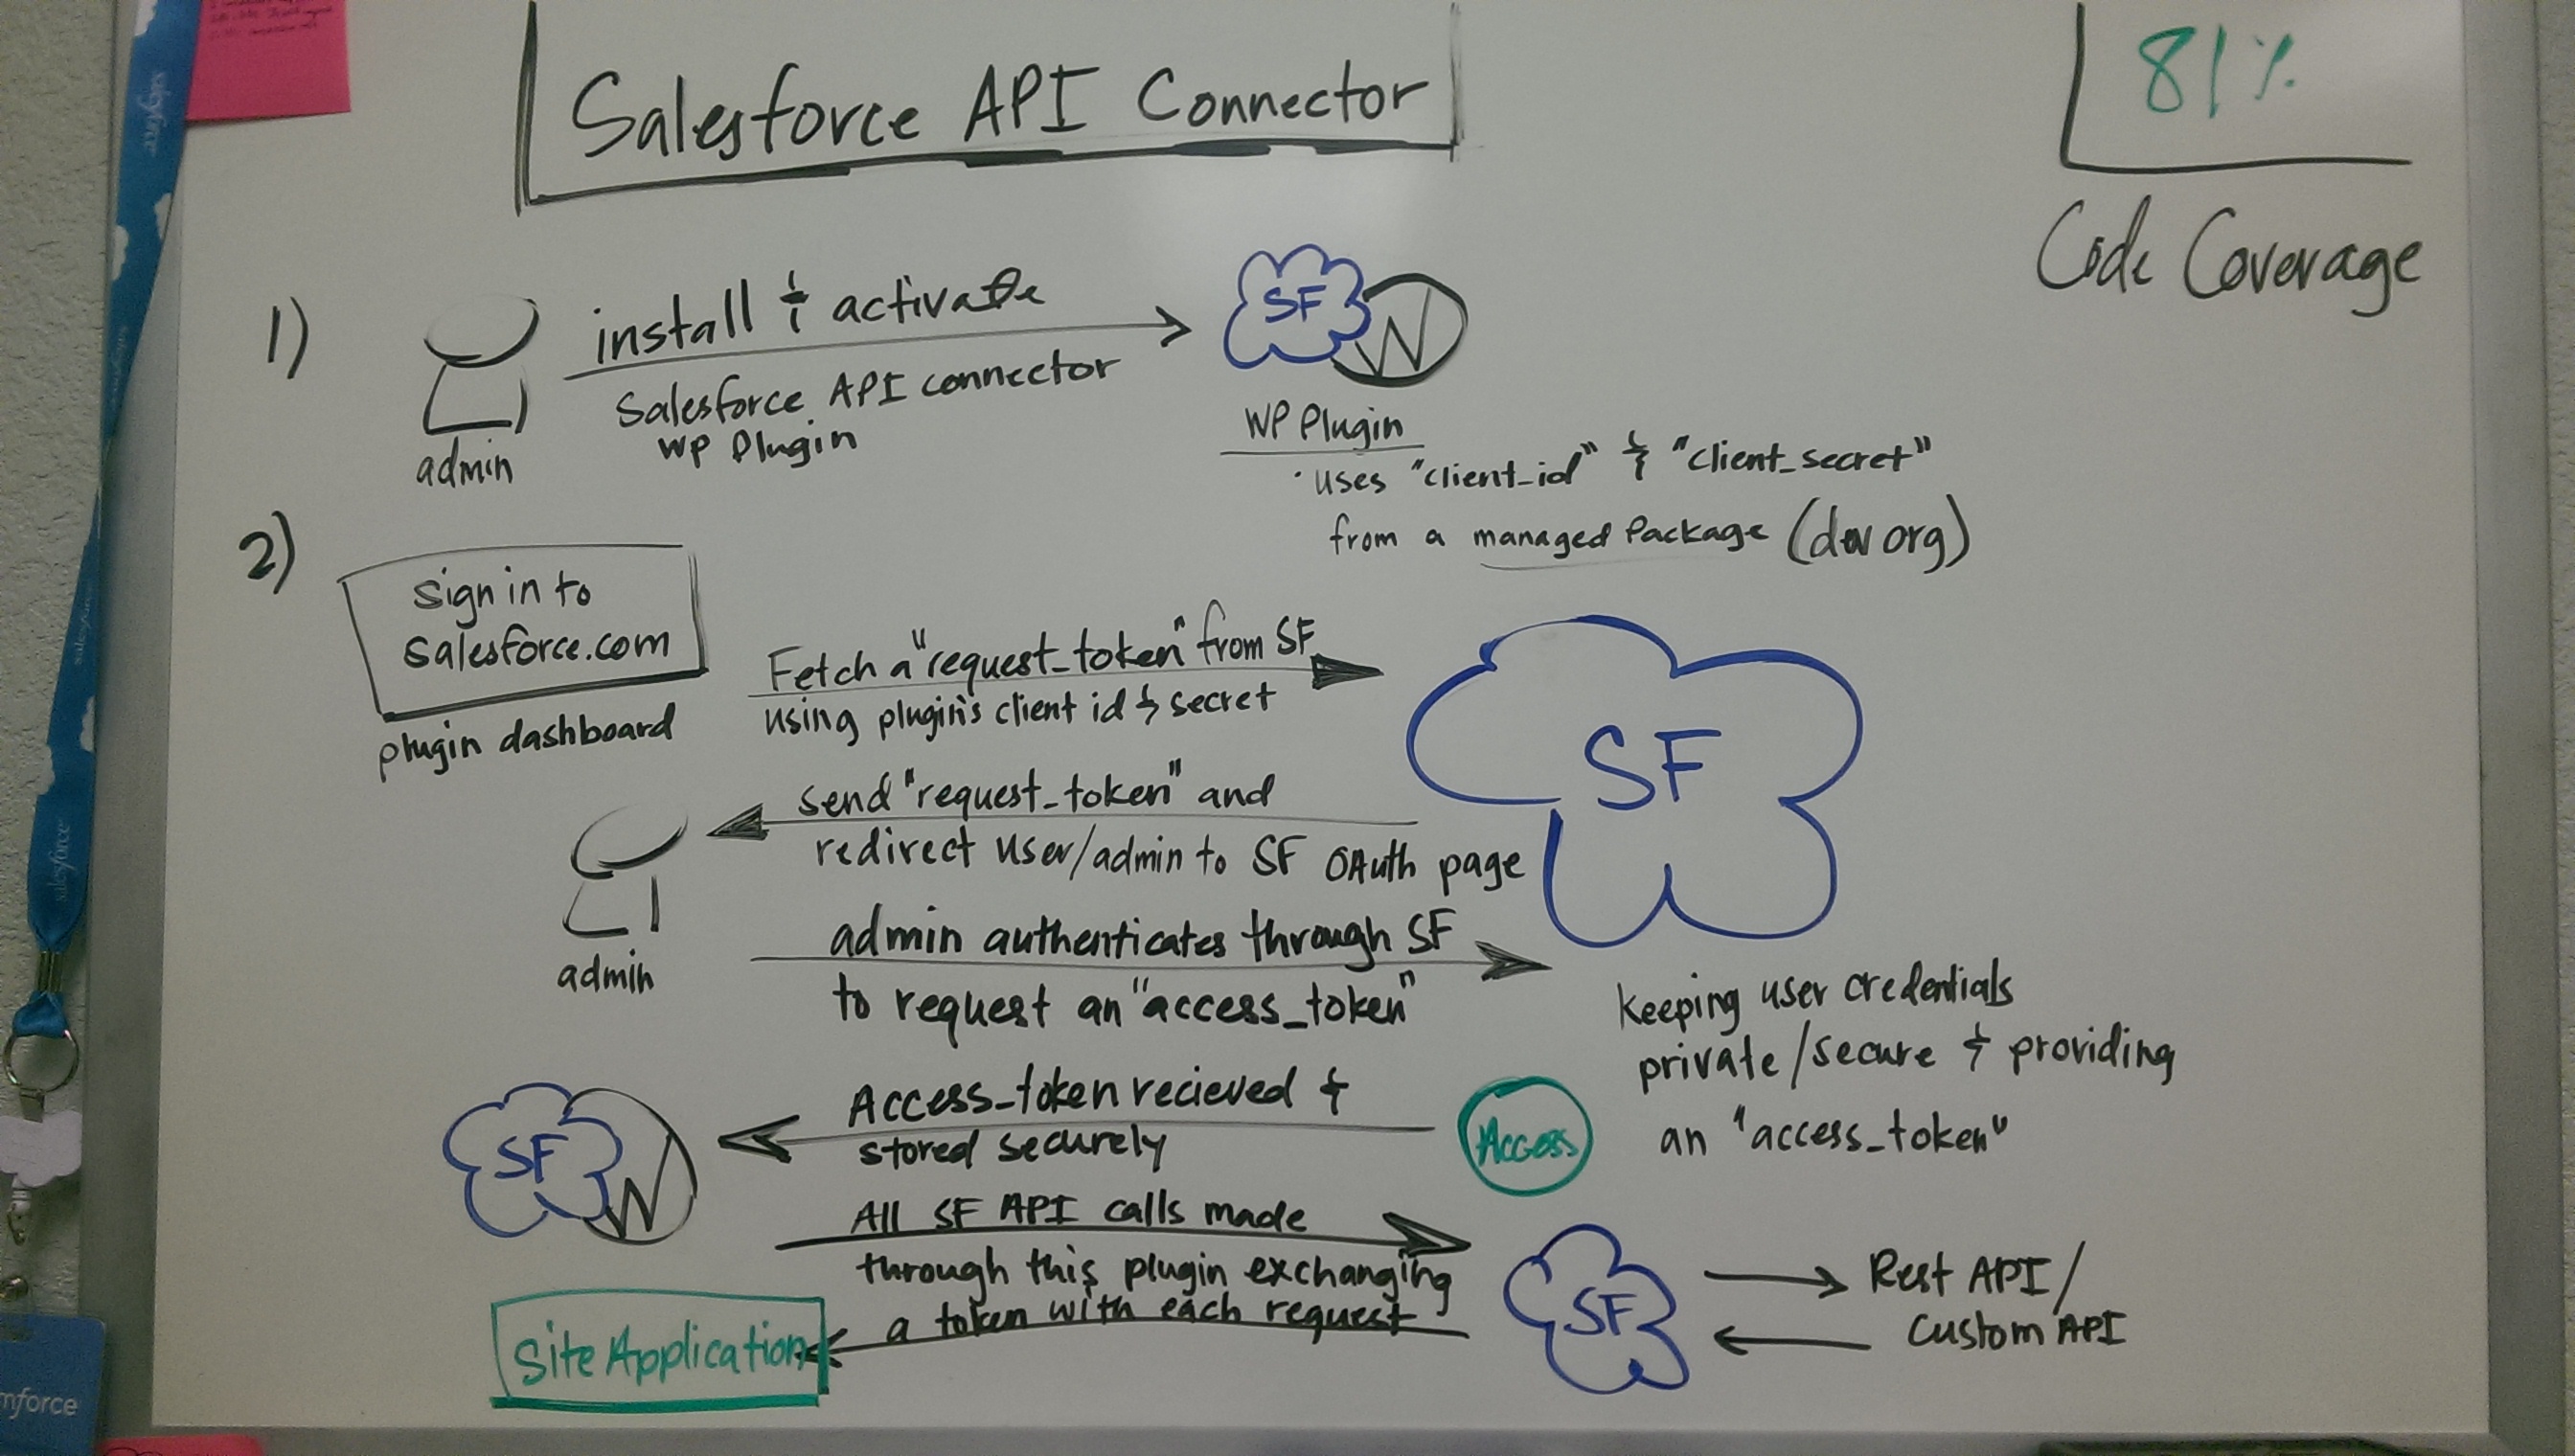 Salesforce API Connector
81%
Code Coverage
1)
install & activate
Salesforce API connector
WP Plugin
admin
SF W
WP Plugin
· uses "client_id" & "client_secret"
from a managed Package (dev org)
2)
Sign in to
salesforce.com
plugin dashboard
Fetch a "request_token" from SF
using plugin's client id & secret
SF
send "request_token" and
redirect user/admin to SF OAuth page
admin
admin authenticates through SF
to request an "access_token"
keeping user credentials
private/secure & providing
an "access_token"
Access_token recieved &
stored securely
Access
SF W
All SF API calls made
through this plugin exchanging
a token with each request
Site Application
SF
Rest API/
Custom API
salesforce
salesforce
salesforce
salesforce
mforce